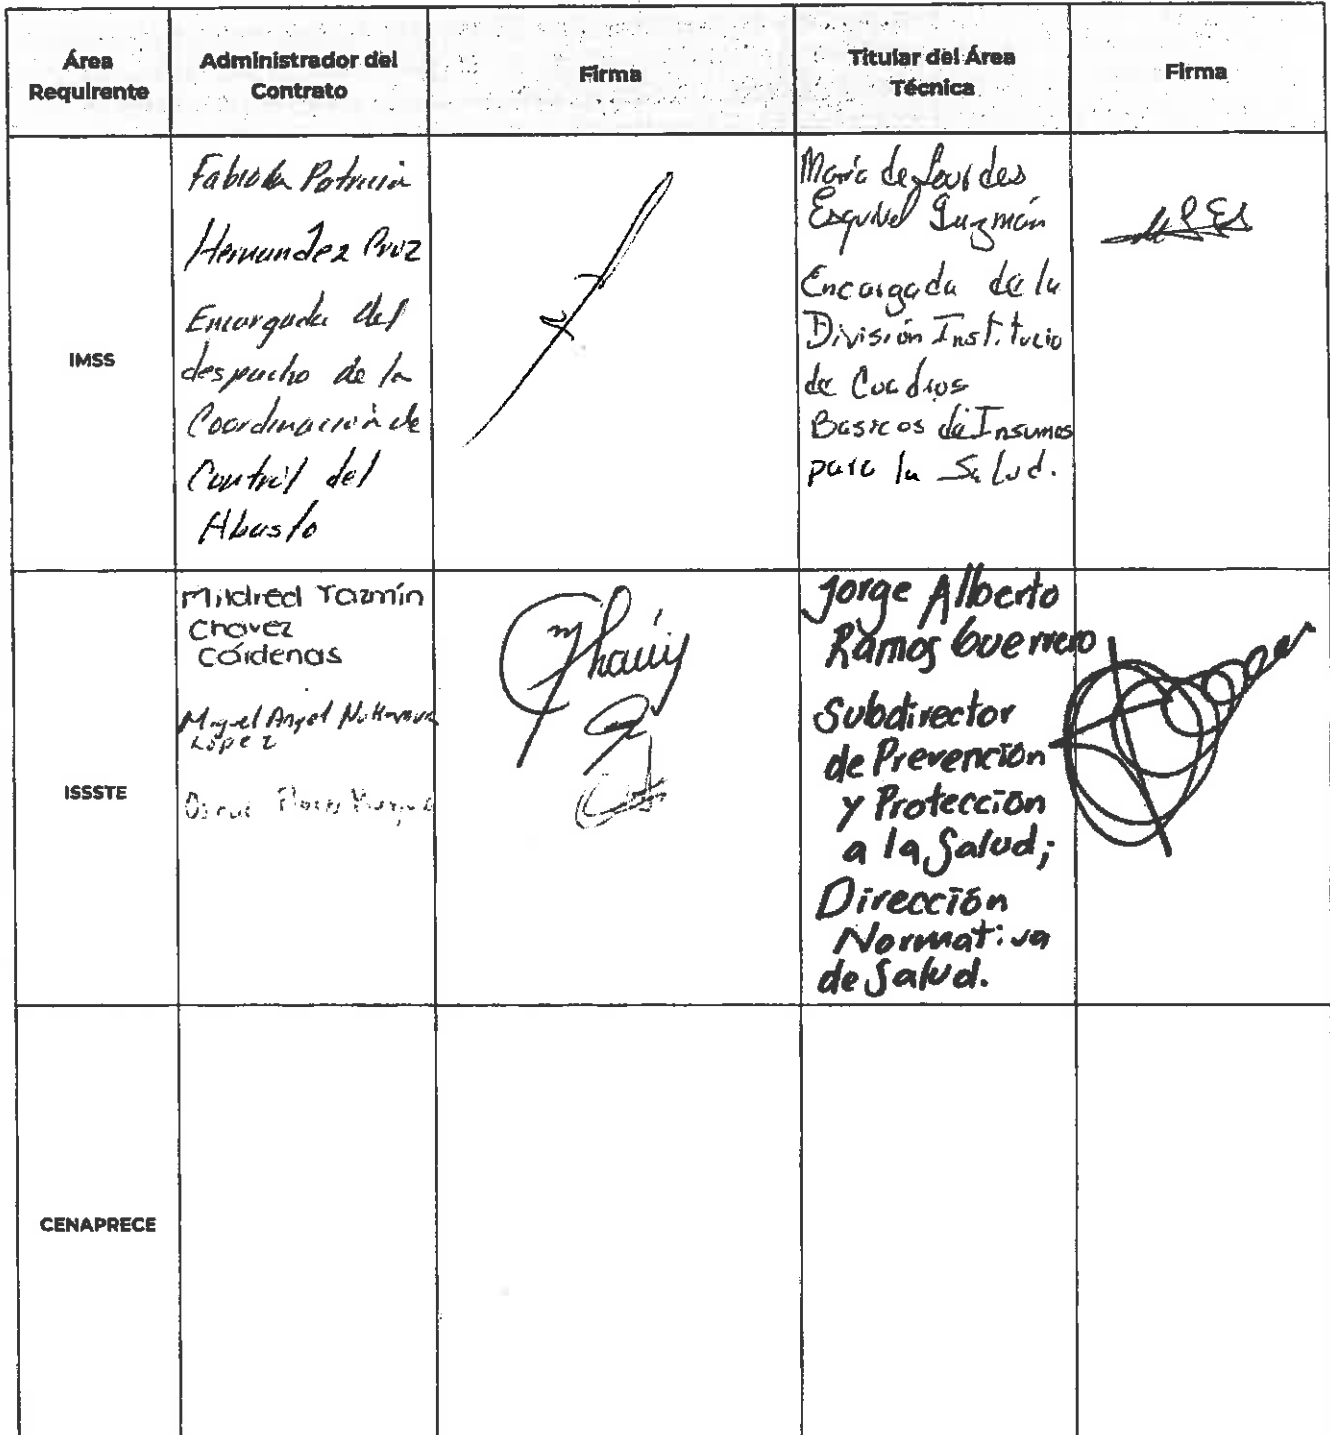 Área Requirente
Administrador del Contrato
Firma
Titular del Área Técnica
Firma
IMSS
Fabiola Patricia
Hernandez
Encargada del
despacho de la
Coordinación de
Control del
Abasto
María de Lourdes
Esquivel Guzmán
Encargada de la
División Institucio
de Cuadros
Basicos de Insumos
para la Salud.
ISSSTE
Mildred Yazmín
Chavez
Cárdenas
Miguel Angel
Lopez
Jorge Alberto
Ramos Guerrero
Subdirector
de Prevención
y Protección
a la Salud;
Dirección
Normativa
de Salud.
CENAPRECE